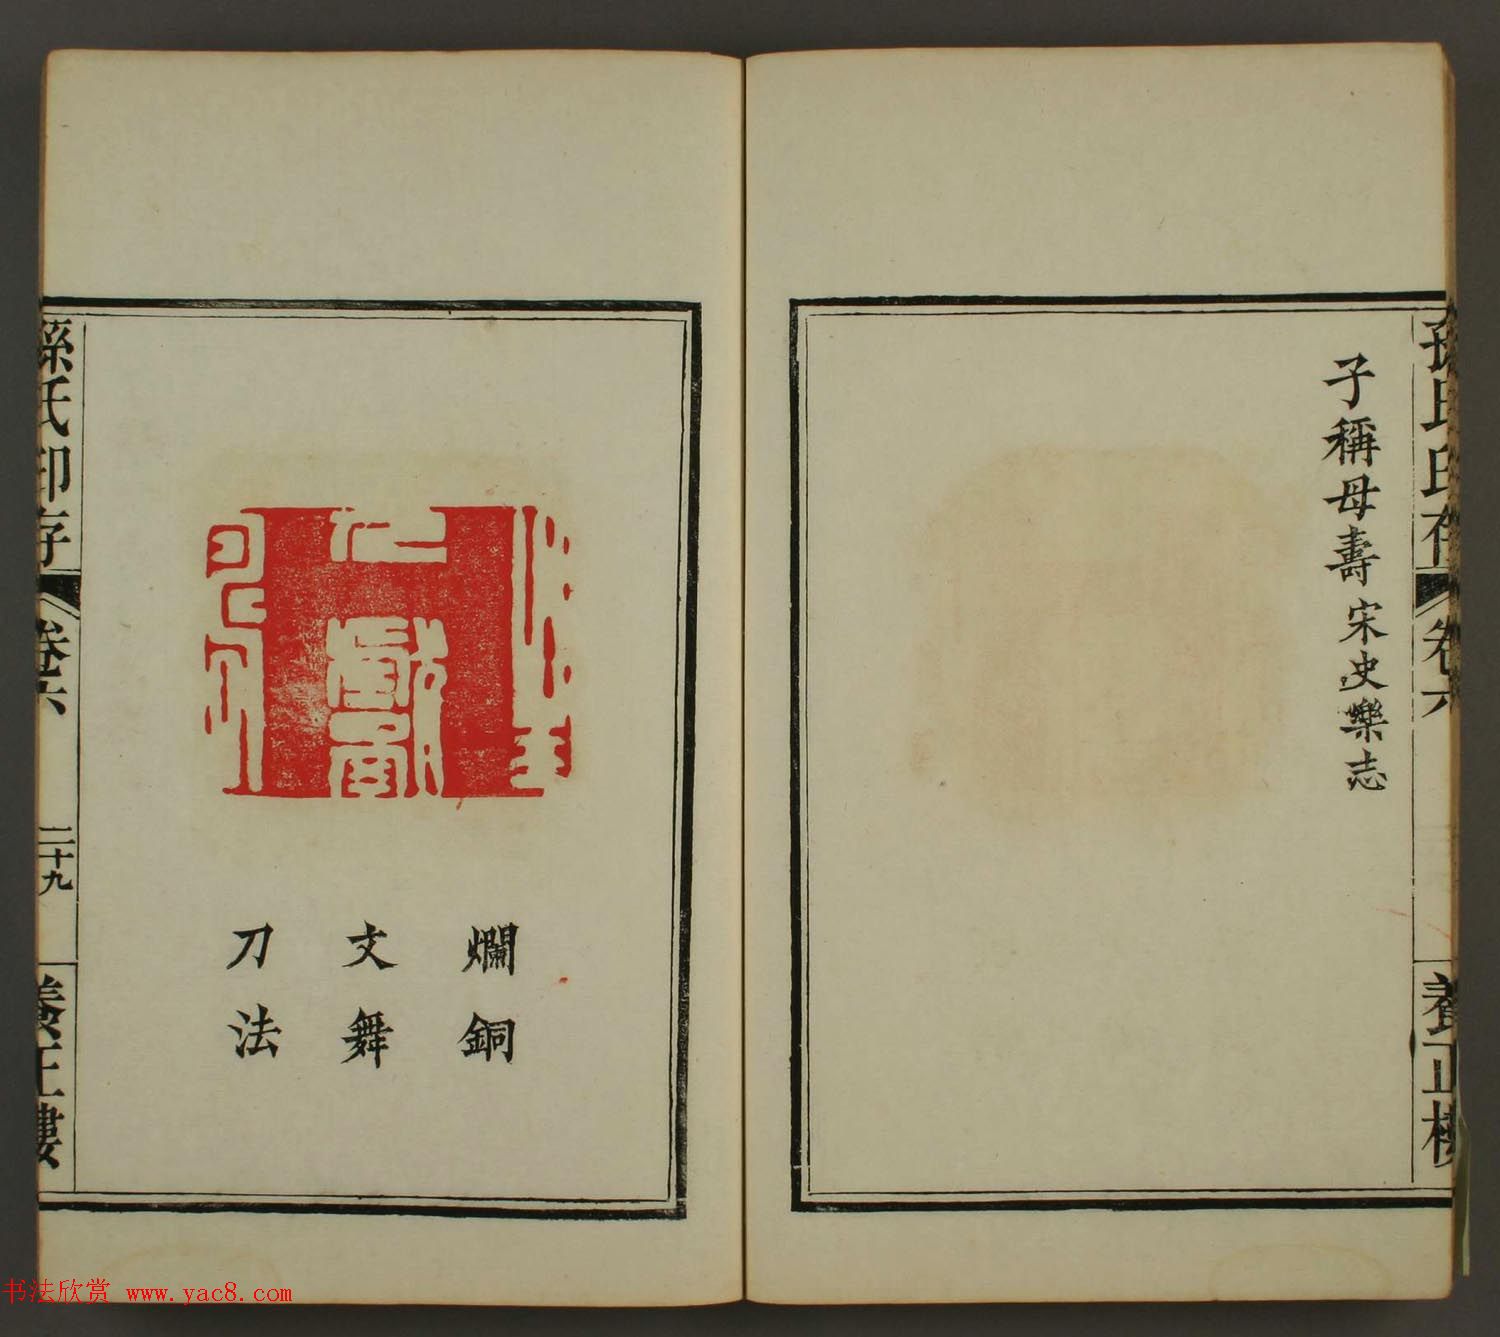 孫氏印存
卷六
養正樓
子稱母壽宋史樂志
爛銅
文舞
刀法
孫氏印存
卷六
二十九
養正樓
书法欣赏 www.yac8.com